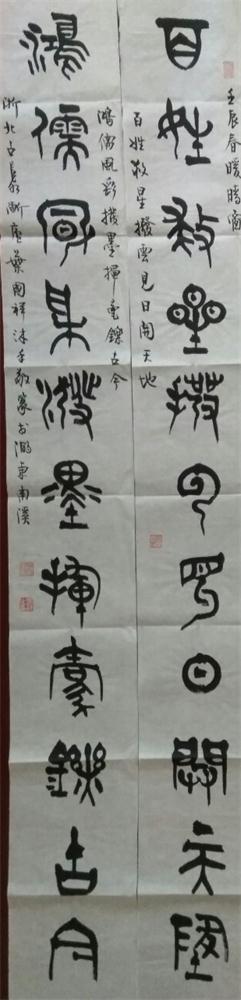 壬辰春暖晴窗
百姓救星撥雲見日開天地
百姓救星撥雲見日開天地
鴻儒風彩撥墨揮毫鑠古今
鴻儒集潑墨揮毫鑠古今
浙北國祥沐手敬篆於湖東南溪